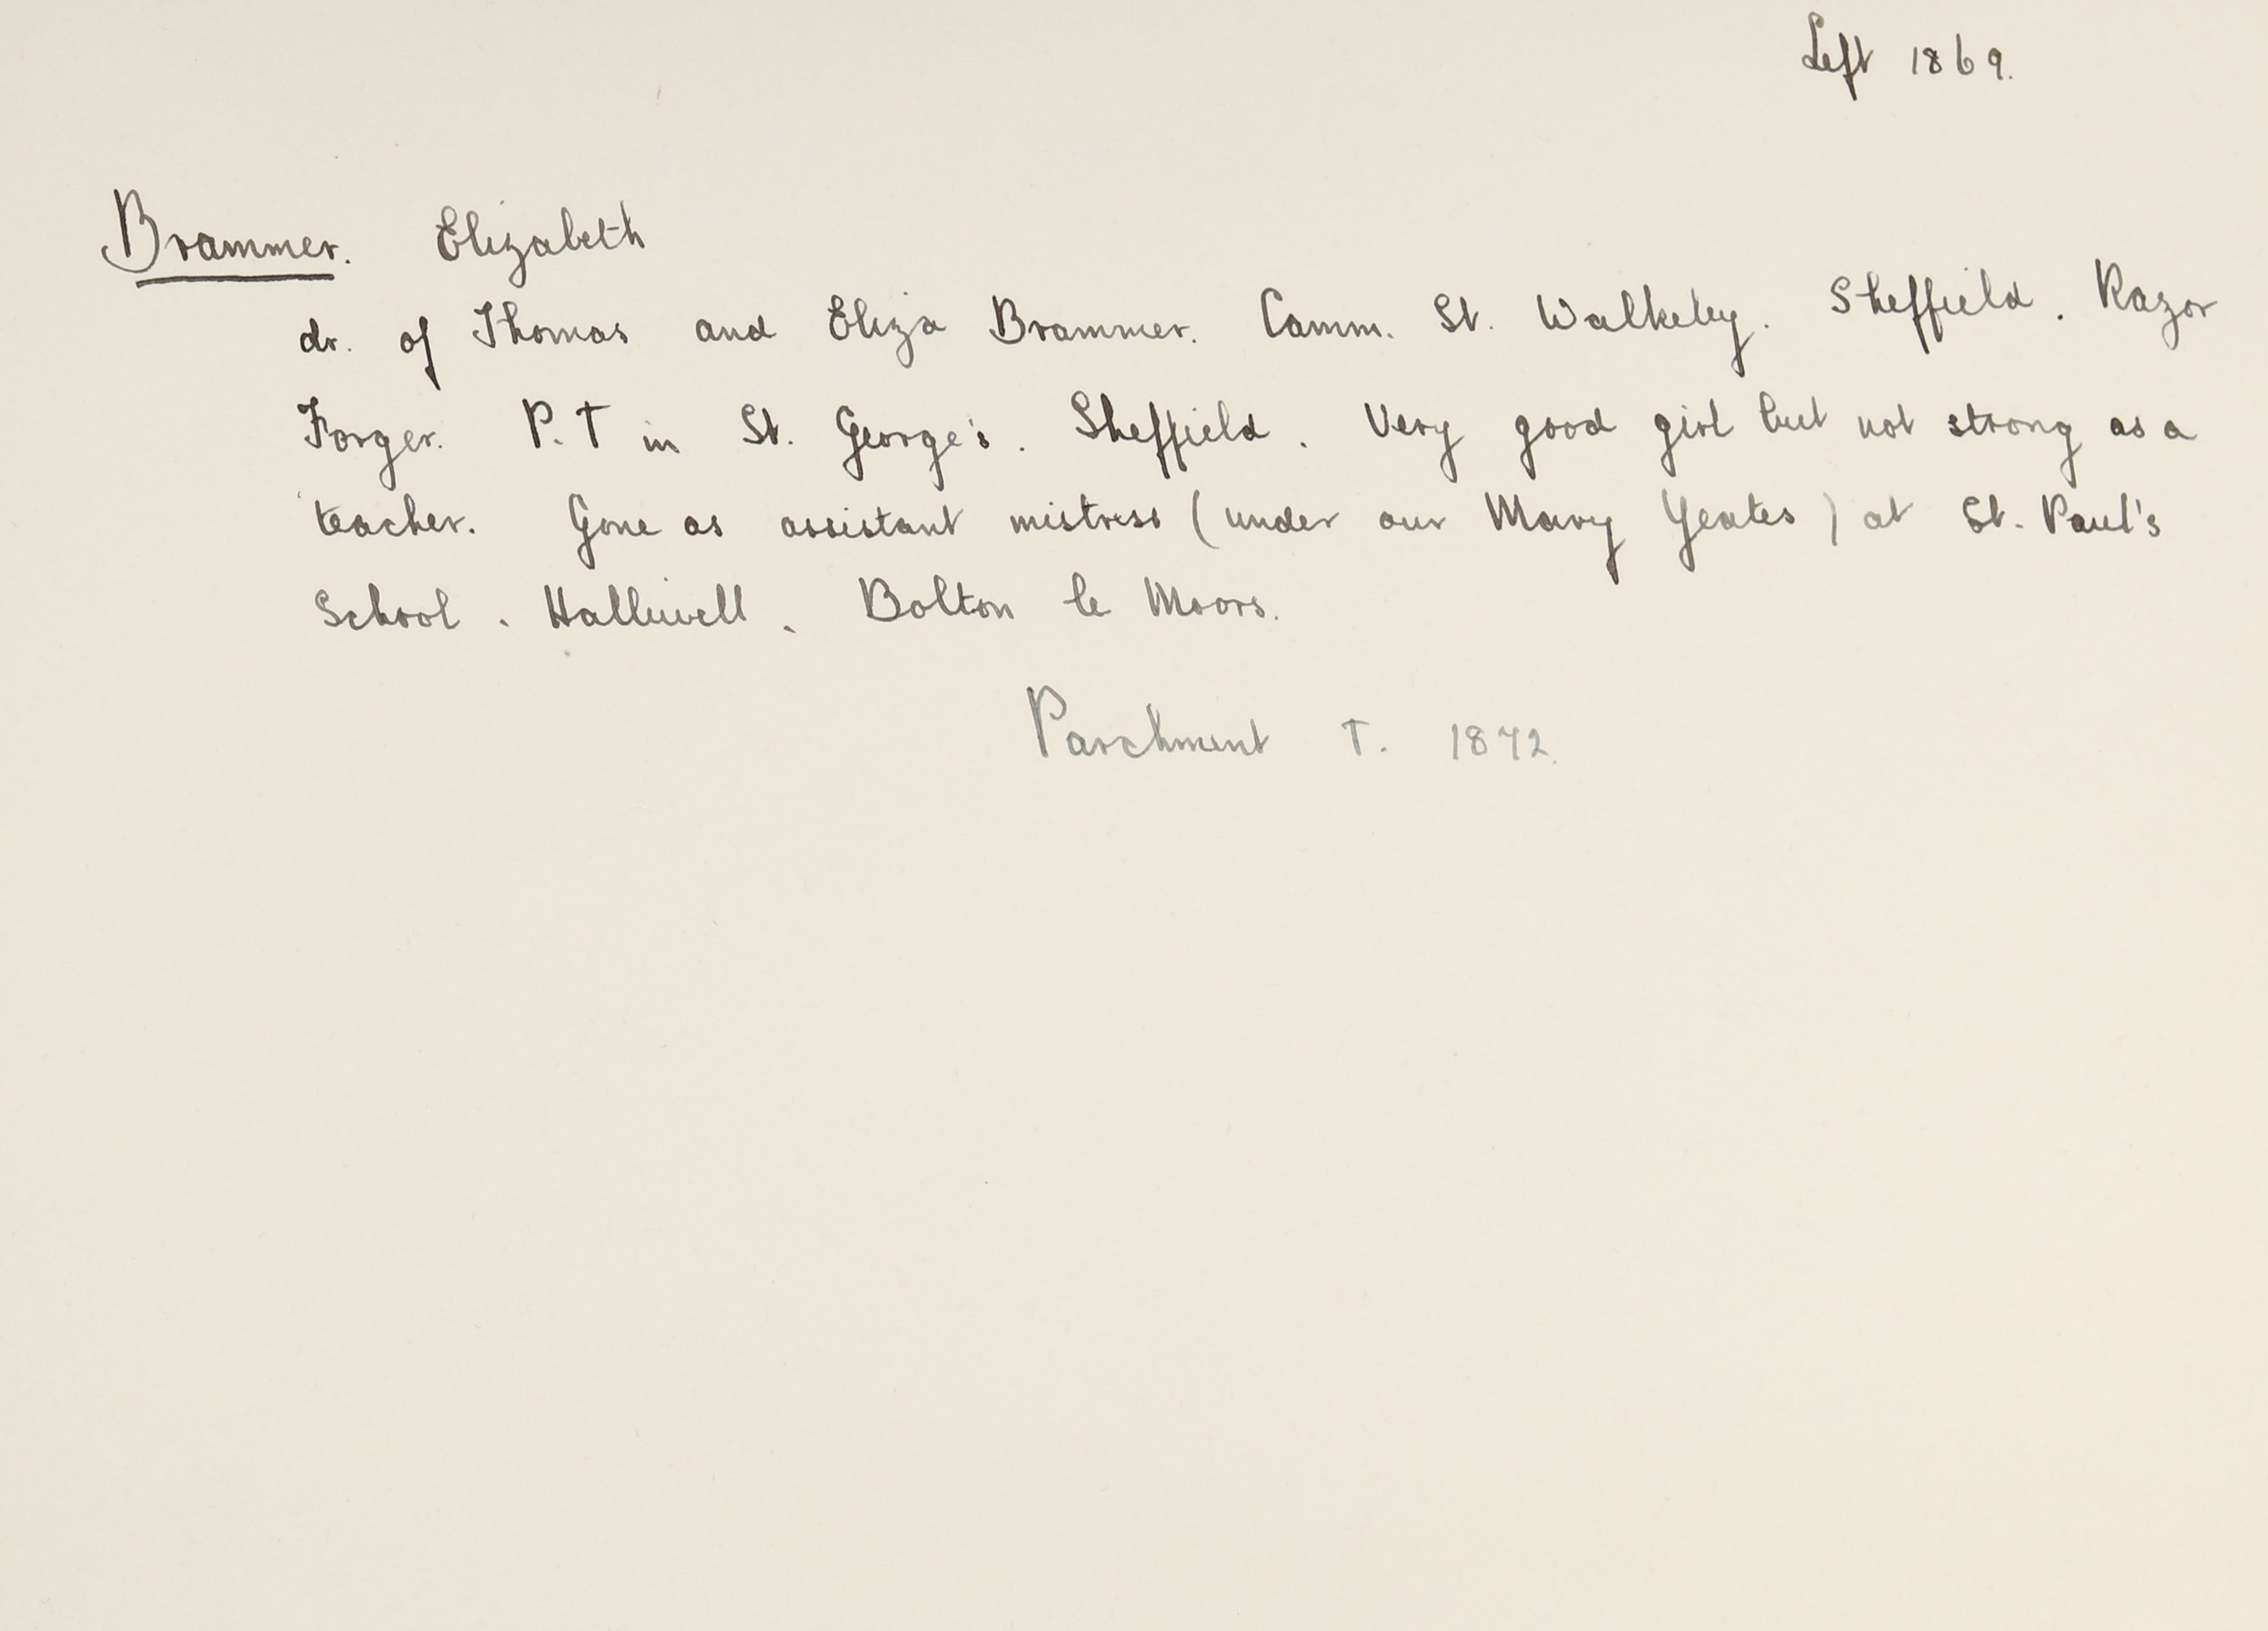 Left 1869.
Brammer. Elizabeth
dr. of Thomas and Eliza Brammer. Camm. St. Walkeley. Sheffield. Razor
Forger. P.T in St. George's. Sheffield. Very good girl but not strong as a
teacher. Gone as assistant mistress (under our Mary Yeates) at St. Paul's
School. Halliwell. Bolton le Moors.
Parchment T. 1872.